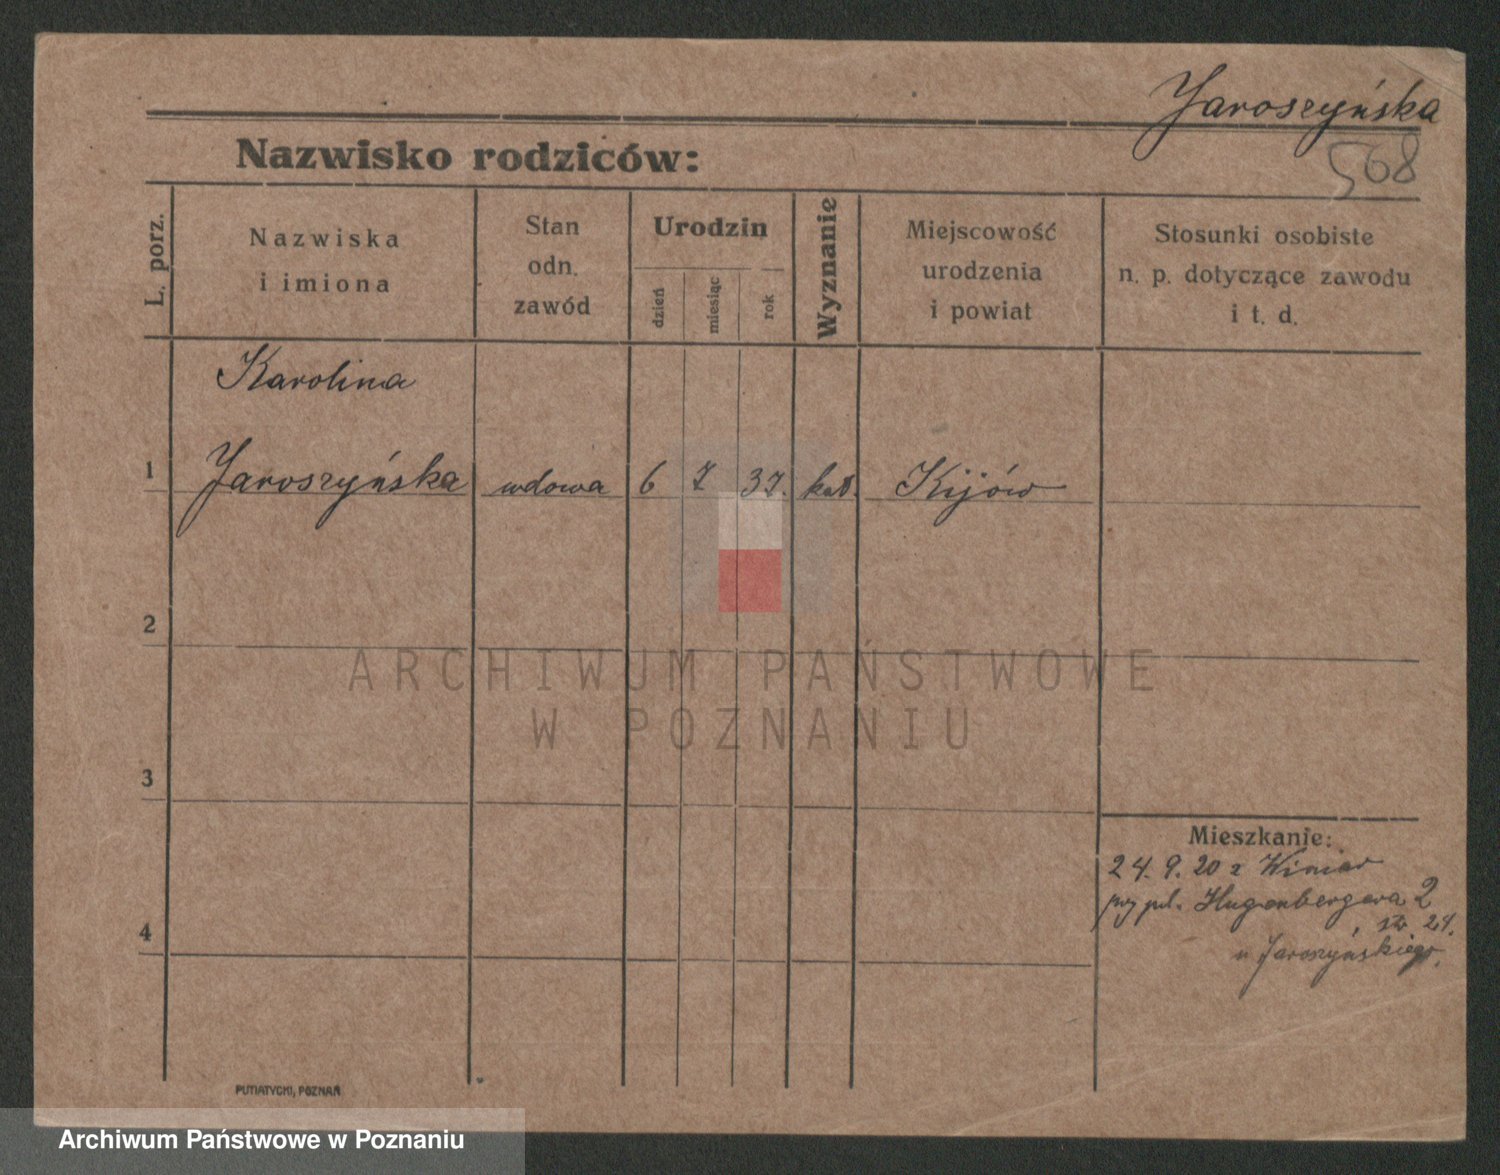 Jaroszyńska
568
Nazwisko rodziców:
L. porz.
Nazwiska
i imiona
Stan
odn.
zawód
Urodzin
dzień
miesiąc
rok
Wyznanie
Miejscowość
urodzenia
i powiat
Stosunki osobiste
n. p. dotyczące zawodu
i t. d.
Karolina
1 Jaroszyńska wdowa 6 7 37. kat. Kijów
2
ARCHIWUM PAŃSTWOWE
W POZNANIU
3
Mieszkanie:
24. 9. 20 z Winiar
przy pl. Hugenbergera 2
24.
4
u Jaroszyńskiego.
PUTIATYCKI, POZNAŃ
Archiwum Państwowe w Poznaniu